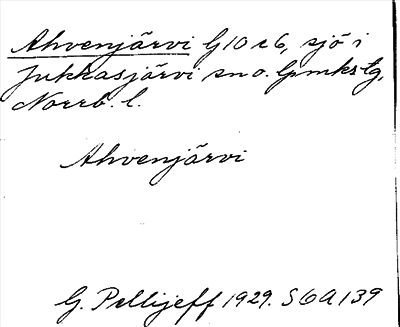 Ahvenjärvi G10 c6, sjö i
Jukkasjärvi sn o. lpmks tg,
Norrb. l.
Ahvenjärvi
G. Pellijeff 1929. S 6 A 139